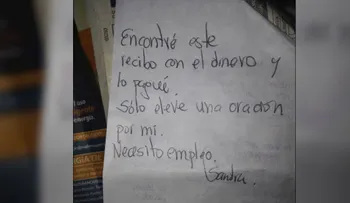 Encontré este
recibo con el dinero y
lo pagué.
Sólo eleve una oración
por mi.
Necesito empleo.
Sandra.